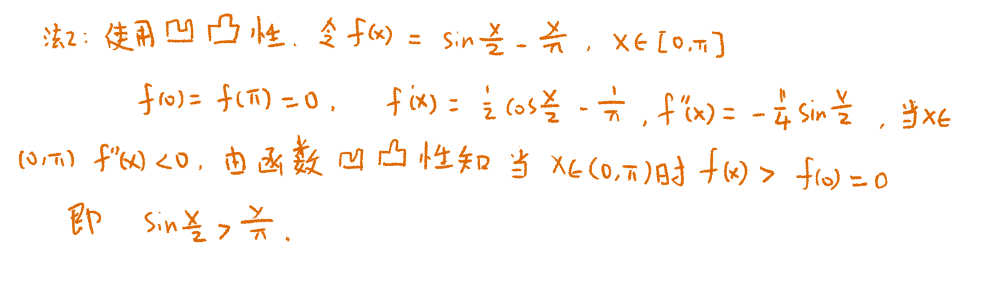 法2: 使用凹凸性. 令 f(x) = sin x/2 - x/π , x∈[0,π]
f(0) = f(π) = 0 , f'(x) = 1/2 cos x/2 - 1/π , f''(x) = - 1/4 sin x/2 , 当x∈
(0,π) f''(x) < 0 , 由函数凹凸性知 当 x∈(0,π)时 f(x) > f(0) = 0
即 sin x/2 > x/π .